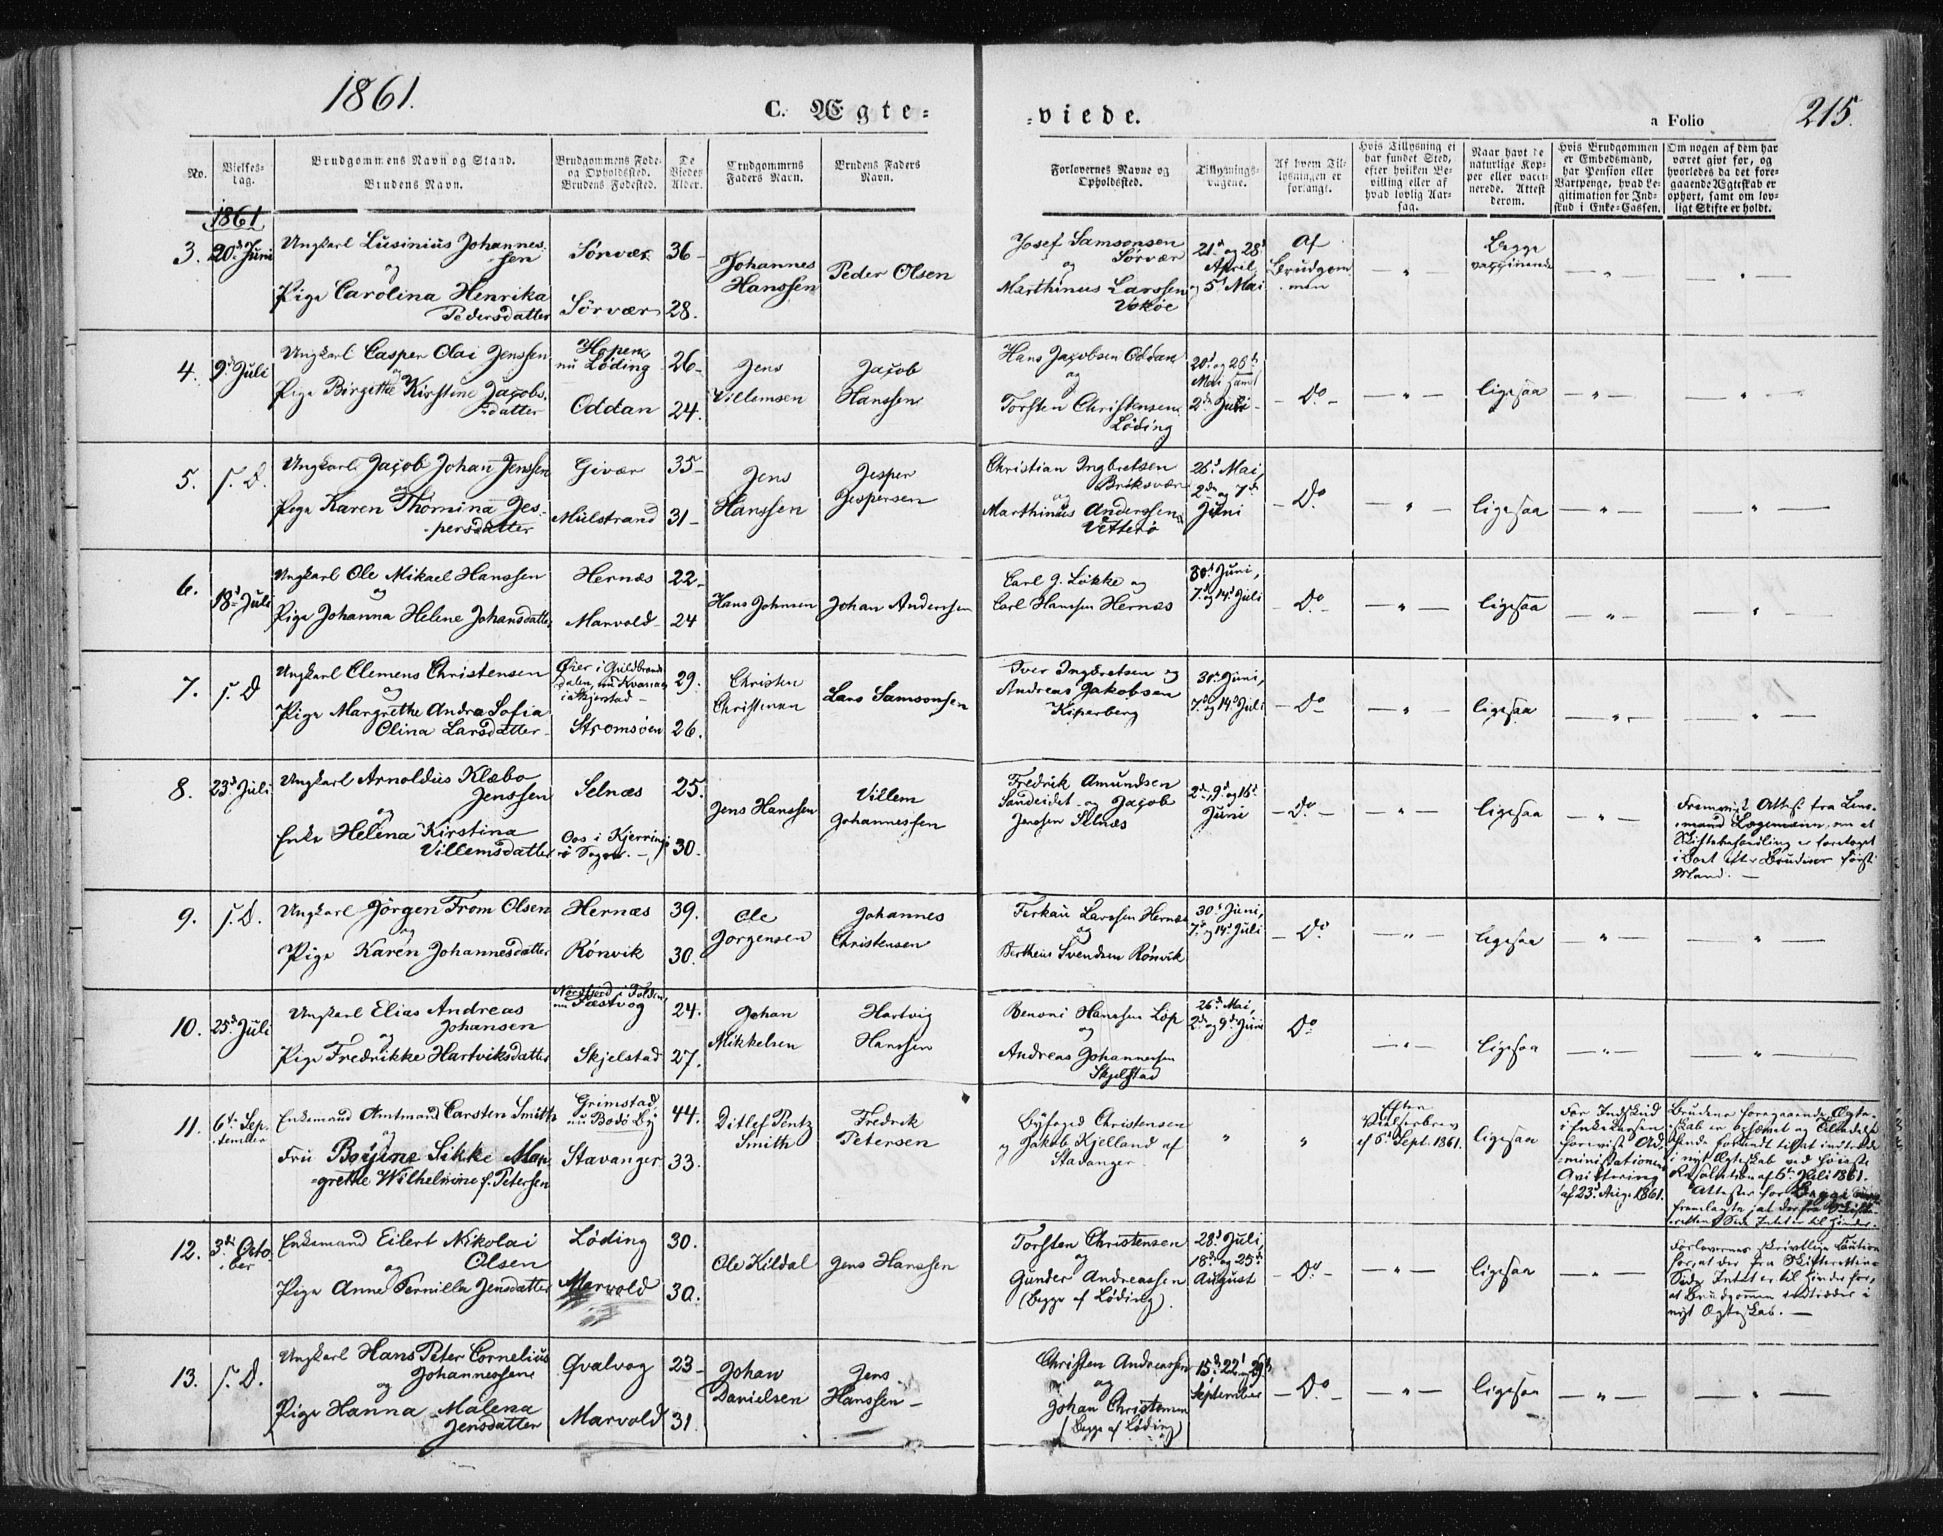 1861.
C. Ægte=
=viede.
a Folio 215.
No.
Vielses-
dag.
Brudgommens Navn og Stand.
Brudens Navn.
Brudgommens Føde-
og Opholdssted.
Brudens Fødested.
De
Viedes
Alder.
Brudgommens
Faders Navn.
Brudens Faders
Navn.
Forlovernes Navne og
Opholdssted.
Tillysnings-
dagene.
Af hvem Til-
lysningen er
forlangt.
Hvis Tillysning ei
har fundet Sted,
efter hvilken Be-
villing eller af
hvad lovlig Aar-
sag.
Naar havt de
naturlige Kop-
per eller vacci-
nerede. Attest
derom.
Hvis Brudgommen
er Embedsmand,
har Pension eller
Vartpenge, hvad Le-
gitimation for Ind-
skud i Enke-Cassen.
Om nogen af dem har
været givt før, og
hvorledes da det fore-
gaaende Ægteskab er
ophørt, samt om lov-
ligt Skifte er holdt.
1861
3. 20d Juni
Ungkarl Lusinius Johannes-
sen
og
Pige Carolina Henrika
Pedersdatter
Sörvær 36
Sörvær 28.
Johannes
Hanssen
Peder Olsen
Josef Samsonsen
Sörvær
og
Marthinus Larssen
21d og 28d
April
og 5d Mai
Af
Brudgom
men
— " —
Begge
vaccinerede
— " —
— " —
4. 9d Juli
Ungkarl Casper Olai Jenssen
og
Pige Birgitte Kirstine Jacobs-
datter
Hopen
nu Löding 26
Oddan 24.
Jens
Villemsen
Jacob
Hanssen
Hans Jacobsen Oddan
og
Torsten Christensen
Löding
20d og 26d
Mai samt
2d Juli
— Do —
— " —
ligesaa
— " —
— " —
5. s. D.
Ungkarl Jacob Johan Jenssen
og
Pige Karen Thomina Jes-
persdatter
Givær 35
Mulstrand 31
Jens
Hanssen
Jesper
Jespersen
Christian Ingbretsen
Briksvær
og
Marthinus Anderssen
Vetterö
26d Mai,
2d og 7d
Juni
— Do
— " —
ligesaa
— " —
— " —
6. 18d Juli
Ungkarl Ole Mikael Hanssen
og
Pige Johanna Helene Johansdatter
Hernæs 22
Marvold 24
Hans Johnsen
Johan Anderssen
Carl J. Lökke og
Carl Hanssen Hernæs
30d Juni,
7d og 14d Juli
— Do
— " —
ligesaa
— " —
— " —
7. s. D
Ungkarl Clemens Christensen
og
Pige Margrethe Andrea Sofia
Olina Larsdatter
Öier i Guldbrands
dalen, nu
i Skjerstad 29.
Strömsöen 26.
Christen
Christensen
Lars Samsonsen
Iver Ingbretsen og
Andreas Jakobsen
Kiperberg
30d Juni,
7d og 14d Juli
— Do
— " —
ligesaa
— " —
— " —
8. 23d Juli
Ungkarl Arnoldus Klæbo
Jenssen
og
Enke Helena Kirstina
Villemsdatter
Selnæs 25.
Oos i Kjerring-
ö Sogn 30.
Jens Hanssen
Villem
Johannessen
Fredrik Amundsen
Sandeidet og Jacob
Jenssen Selnæs
2d, 9d og 16d
Juni
— Do —
— " —
ligesaa
— " —
Fremvist Attest fra Lens-
mand Lægemann, om at
Skiftebehandling er foretaget
i Boet efter Brudens först
Mand. —
9. s. D.
Ungkarl Jörgen From Olsen
og
Pige Karen Johannesdatter
Hernæs 39.
Rönvik 30.
Ole
Jörgensen
Johannes
Christensen
Terkau Larssen Hernæs
og
Bertheus Svendsen Rönvik
30d Juni,
7d og 14d Juli
— Do
— " —
ligesaa
— " —
— " —
10. 25d Juli
Ungkarl Elias Andreas
Johansen
og
Pige Fredrikke Hartviksdatter
Nordfjord i Folden,
nu Fæstvog 24.
Skjelstad 27.
Johan
Mikkelsen
Hartvig
Hanssen
Benoni Hanssen Löp
og
Andreas Johannessen
Skjelstad
26d Mai,
2d og 9d Juni
Do
— " —
ligesaa
— " —
— " —
11. 6te Sep-
tember
Enkemand Amtmand Carsten Smith
og
Frü Boyine Sikke Mar-
grethe Wilhelmine f. Petersen
Grimstad,
nu Bodö By 44.
Stavanger 33.
Ditlef Pentz
Smith
Fredrik
Petersen
Byfoged Christensen
og Jakob Kjelland af
Stavanger.
"
"
Efter
Vielserbrev
af 5d Sept. 1861.
ligesaa
For Indskud
i Enkekassen
forevist Ad-
ministationens
Qvittering
af 23d Aug. 1861.
Brudens foregaaende Ægte-
skab er ophævet og Tilladelse
hende forundt til at indtræde
i nyt Ægteskab ved höieste
Resolution af 6te Juli 1861.
Attester for Begge
fremlagte, at der fra Skifte-
rettens Side Intet er til Hinder.
12. 3die Octo-
ber
Enkemand Eilert Nikolai
Olsen
og
Pige Anne Pernilla Jensdatter
Löding 30.
Marvold 30.
Ole Kildal
Jens Hanssen
Torsten Christensen
og
Gunder Andreassen
(begge af Löding).
28d Juli
18d og 25d
August
— Do —
— " —
ligesaa
— " —
Forlovernes skrivtlige Caution
for, at der fra Skifterettens
Side Intet er til Hinder for,
at Brudgommen indtræder i
nyt Ægteskab. —
13. s. D.
Ungkarl Hans Peter Cornelius
Johannessen
og
Pige Hanna Malena
Jensdatter
Qvalvog 23
Marvold 31
Johan
Danielsen
Jens
Hanssen
Christen Andreassen
og
Johan Christensen
(begge af Löding)
15d, 22d og 29d
September
— Do
— " —
ligesaa
— " —
— " —